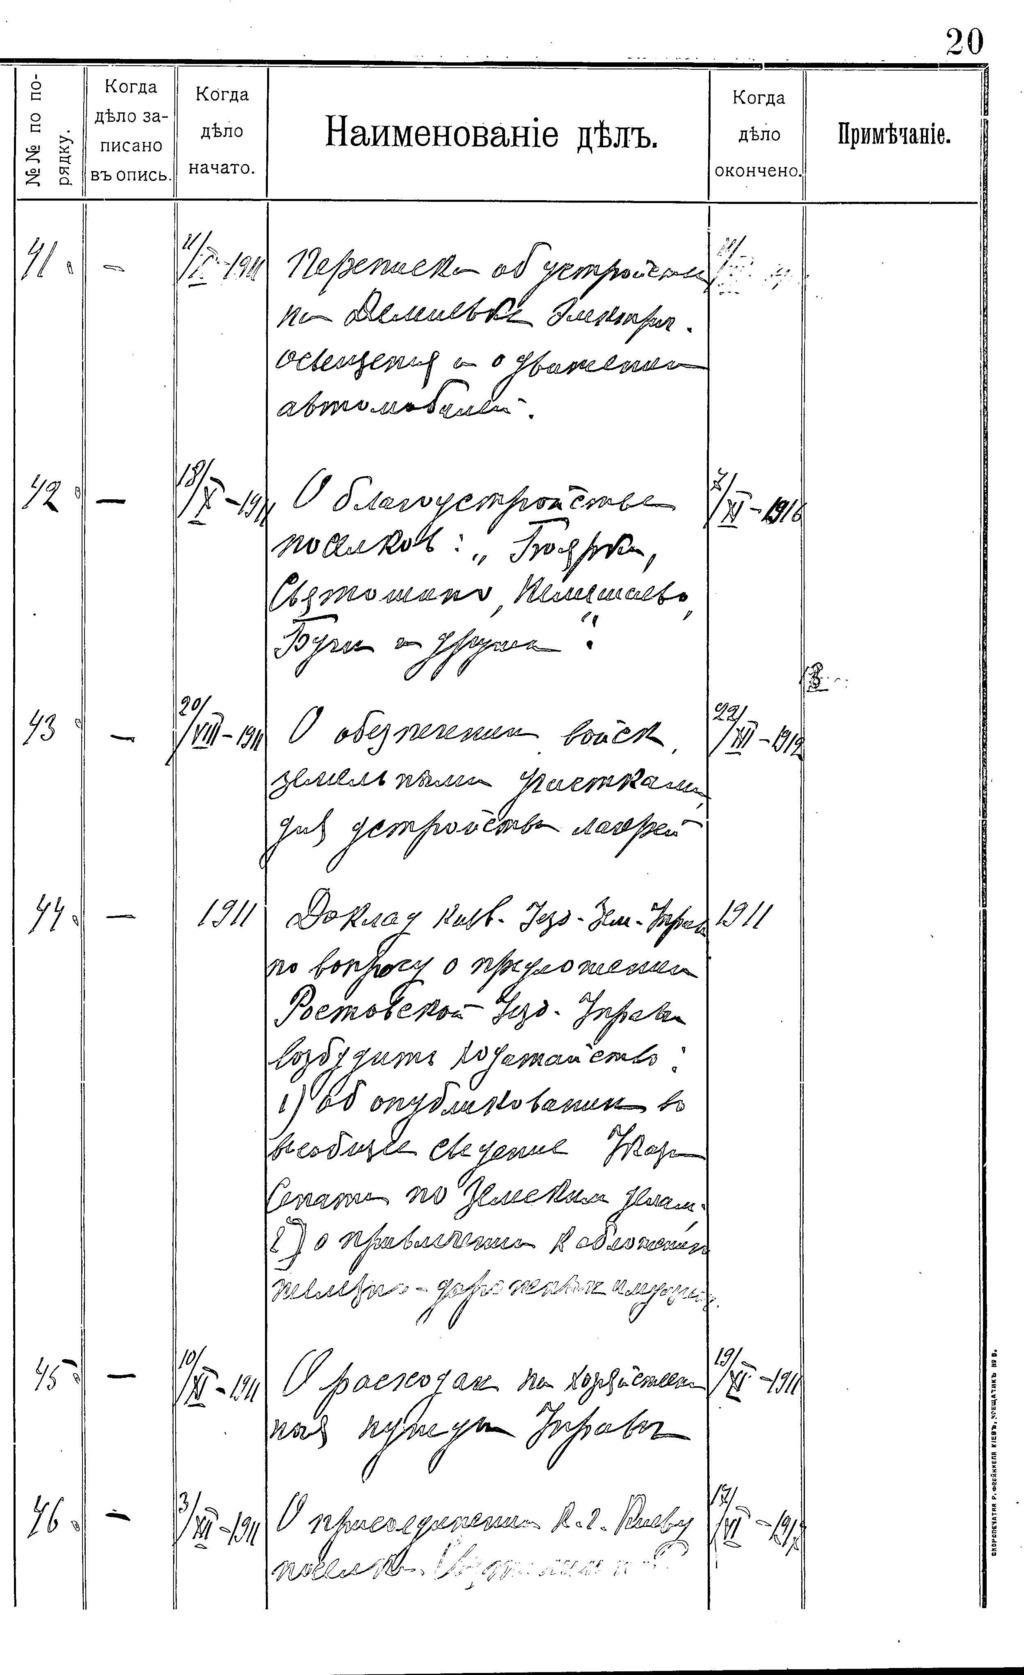 20
№№ по по-
рядку.
Когда
дѣло за-
писано
въ опись.
Когда
дѣло
начато.
Наименованіе дѣлъ.
Когда
дѣло
окончено.
Примѣчаніе.
41. — 1911 Переписка об устройстве
на Демиевке Электрич.
освещения и о движении
автомобилей.
42 — 18/X-1911 О благоустройстве 7/XI-1916
поселков: „Боярки,
Святошино, Келишаево,
Бучи и друга":
43 — 20/VIII-1911 О обезпечении войск 22/XII-1912
земельными участками
для устройства лагерей
44. — 1911 Доклад Киев. Уезд. Зем. Управ 1911
по вопросу о предложении
Ростовской Уезд. Управы
возбудить ходатайство:
1) об опубликовании во
всеобщее сведение Указ
Сената по Земским делам.
2) о привлечении к обложению
железно-дорожных имущ
45 — 10/XI-1911 О расходах на хозяйствен 19/XI-1911
ныя нужды Управы
46. — 3/XII-1911 О присоединении к г. Киеву 17/VI-1917
поселка Святошино
СКОРОПЕЧАТНЯ Р. КІЕВЪ, КРЕЩАТИКЪ